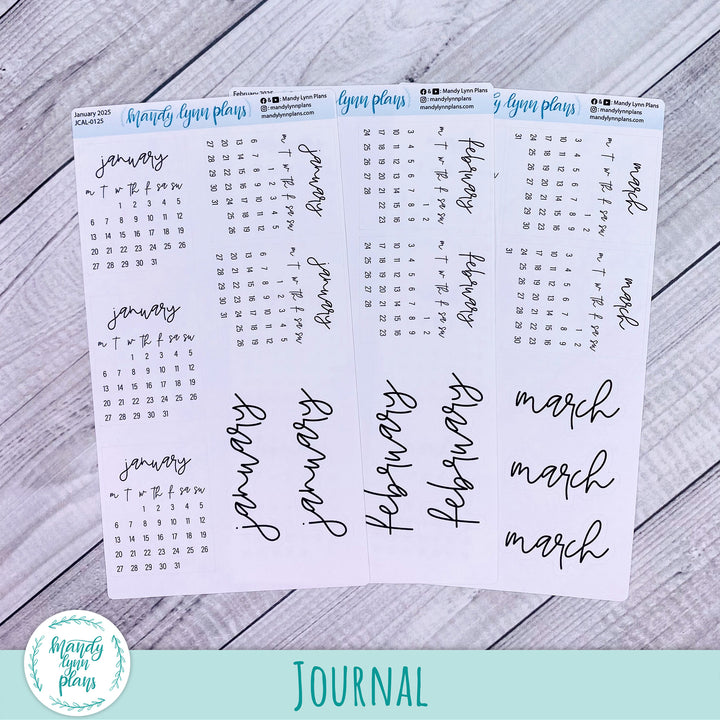 January 2025
JCAL-0125
mandy lynn plans
& : Mandy Lynn Plans
: mandylynnplans
mandylynnplans.com
january
m T w Th f sa su
1 2 3 4 5
6 7 8 9 10 11 12
13 14 15 16 17 18 19
20 21 22 23 24 25 26
27 28 29 30 31
january
m T w Th f sa su
1 2 3 4 5
6 7 8 9 10 11 12
13 14 15 16 17 18 19
20 21 22 23 24 25 26
27 28 29 30 31
january
m T w Th f sa su
1 2 3 4 5
6 7 8 9 10 11 12
13 14 15 16 17 18 19
20 21 22 23 24 25 26
27 28 29 30 31
january
m T w Th f sa su
1 2 3 4 5
6 7 8 9 10 11 12
13 14 15 16 17 18 19
20 21 22 23 24 25 26
27 28 29 30 31
january
m T w Th f sa su
1 2 3 4 5
6 7 8 9 10 11 12
13 14 15 16 17 18 19
20 21 22 23 24 25 26
27 28 29 30 31
january
january
February 2025
lynn plans
& : Mandy Lynn Plans
: mandylynnplans
mandylynnplans.com
february
m T w Th f sa su
1 2
3 4 5 6 7 8 9
10 11 12 13 14 15 16
17 18 19 20 21 22 23
24 25 26 27 28
february
m T w Th f sa su
1 2
3 4 5 6 7 8 9
10 11 12 13 14 15 16
17 18 19 20 21 22 23
24 25 26 27 28
february
february
lynn plans
& : Mandy Lynn Plans
: mandylynnplans
mandylynnplans.com
march
m T w Th f sa su
1 2
3 4 5 6 7 8 9
10 11 12 13 14 15 16
17 18 19 20 21 22 23
24 25 26 27 28 29 30
31
march
m T w Th f sa su
1 2
3 4 5 6 7 8 9
10 11 12 13 14 15 16
17 18 19 20 21 22 23
24 25 26 27 28 29 30
31
march
march
march
mandy
lynn
plans
JOURNAL